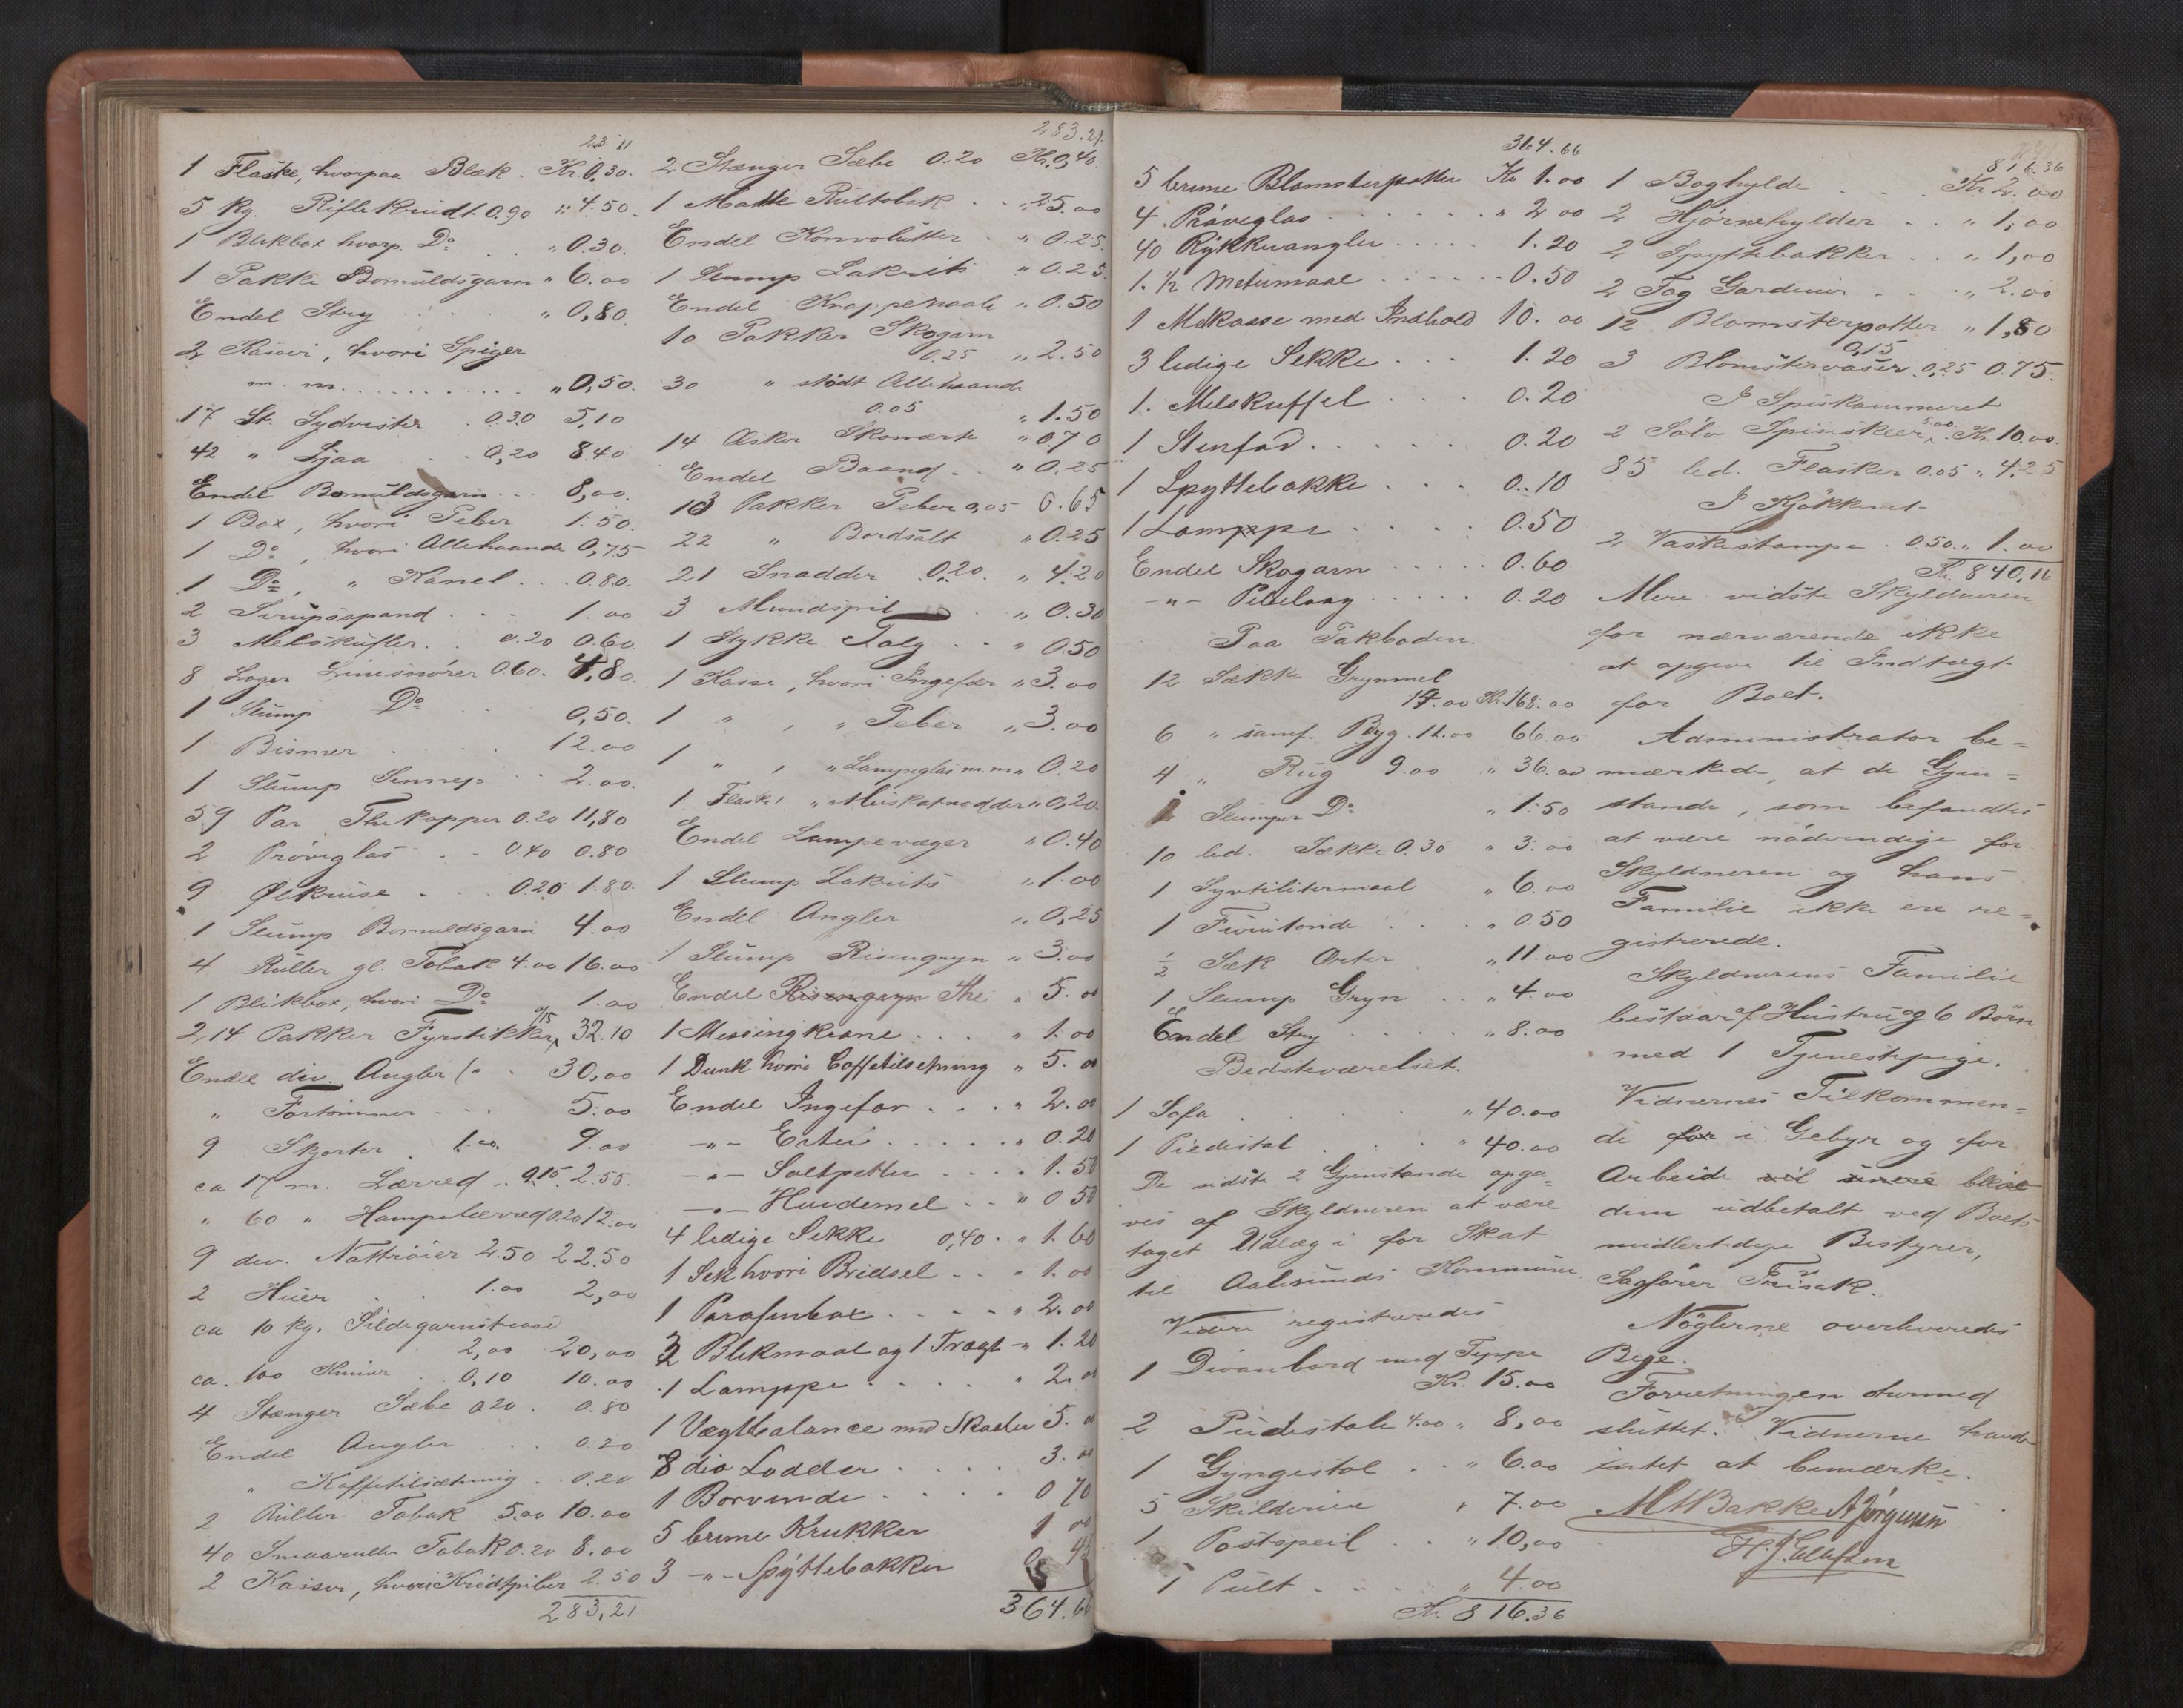 22.11
1 Flaske, hvorpaa Blæk. Kr. 0.30.
5 Kg. Riflekrudt 0.90 " 4.50.
1 Blikbox hvorp. Do " 0.30.
1 Pakke Bomuldsgarn " 6.00
Endel Stry " 0,80
2 Kasser, hvori Spiger
m. m. " 0,50.
17 St. Sydvester 0.30 5,10
42 " Ljaa 0,20 8.40
Endel Bomuldsgarn 8,00.
1 Box, hvori Peber 1.50.
1 Do, hvori Allehaande 0,75
1 Do, " Kanel 0.80.
2 Sirupsspand 1.00
3 Melskufler 0.20 0.60.
8 Loger Linesnörer 0.60. 4,80.
1 Slump Do 0,50.
1 Bismer 12.00
1 Slump Sennep 2.00.
59 Par Thekopper 0.20 11,80
2 Pröveglas 0.40 0.80
9 Ølkruse 0.20 1.80.
1 Slump Bomuldsgarn 4.00
4 Ruller gl. Tobak 4.00 16.00
1 Blikbox, hvori Do 1.00
2,14 Pakker Fyrstikker 0/15 32.10
Endel div. Angler 30,00
" Fortömmer 5.00
9 Skjorter 1.00 9.00
ca 17 m. Lærred 0.15 2.55.
" 60 " Hampelærred 0.20 12.00
9 div. Nattröier 2.50 22.50
2 Huer 1.00 2,00
ca 10 kg. Sildegarnstraad
2,00 20,00
ca. 100 Kniver 0,10 10.00
4 Stænger Sæbe 0.20 0.80
Endel Angler 0.20
" Kaffetilsætning 0.20
2 Ruller Tobak 5.00 10.00
40 Smaaruller Tobak 0.20 8.00
2 Kasser, hvori Kridtpiber 2.50
283,21
283.21
2 Stænger Sæbe 0.20 Kr. 0,40.
1 Matte Rultobak " 25.00
Endel Konvolutter " 0.25.
1 Slump Lakrits " 0.25.
Endel Knappenaale " 0.50
10 Pakker Skogarn
0.25 " 2.50
30 " stödt Allehaande
0.05 " 1.50
14 Æsker Skosværte " 0.70
Endel Baand " 0.25
13 Pakker Peber 0,05 0.65
22 " Bordsalt " 0.25
21 Snadder 0.20. " 4.20
3 Mundspil " 0.30
1 Stykke Talg " 0.50
1 Kasse, hvori Ingefær " 3.00
1 " , " Peber " 3.00
1 " , " Lampeglas m.m. " 0.20
1 Flaske, " Muskatnødder " 0,20.
Endel Lampevæger " 0.40
1 Slump Lakrits " 1.00
Endel Angler " 0,25
1 Slump Risengryn " 3.00
Endel Risengryn The " 5.00
1 Messingkrane " 1.00
1 Dunk hvori Caffetilsetning " 5.00
Endel Ingefær " 2.00
-"- Erter " 0.20
-"- Saltpetter 1.50
-"- Hvedemel " 0.50
4 ledige Sekke 0,40. " 1.60
1 Sek hvori Bridsel " 1.00
1 Parafinbox " 2.00
2 Blikmaal og 1 Tragt " 1.20
1 Lamppe " 2.00
1 Vægtbalance med Skaaler 5.00
8 div Lodder 3.00
1 Borvinde 0 70
5 brune Krukker 1 00
3 -"- Spyttebakker 0 45
364.66
364.66
5 brune Blomsterpotter Kr 1.00
4 Pröveglas " 2 00
40 Rykkerangler 1.20
1. ½ Metermaal 0.50
1 Mælkasse med Indhold 10. 00
3 ledige Sekke 1.20
1. Melskuffel 0.20
1 Stenfad 0.20
1 Spyttebakke 0.10
1 Lamppe 0.50
Endel Skogarn 0.60
-"- 0.20
Paa Pakboden.
12 Sække Grynmel
14.00 Kr. 168.00
6 " samf. Byg. 11.00 66.00
4 " Rug 9.00 " 36.00
Slumper Do " 1.50
10 led. Sække 0.30 " 3.00
1 Syvtilitermaal " 6.00
1 " 0.50
½ Sæk Erter " 11.00
1 Slump Gryn " 4.00
Endel Stry " 8.00
Bedsteværelset.
1 Sofa " 40.00
1 Piedestal " 40.00
De sidste 2 Gjenstande opga-
ves af Skyldneren at være
taget Udlæg i for Skat
til Aalesunds Kommune.
Videre registreredes
1 Divanbord med Teppe
Kr. 15.00
2 Piedestale 4.00 " 8,00
1 Gyngestol " 6.00
5 Skilderier " 7.00
1 " 10,00
1 Pult " 4.00
Kr. 816.36
816.36
1 Boghylde Kr. 2.00
2 Hjörnehylder " 1,00
2 Spyttebakker " 1,00
2 Fag Gardiner " 2.00
12 Blomsterpotter " 1,80
0,15
3 Blomstervaser 0,25 0.75.
I Spiskammeret
2 Sölv Spiseskeer 5.00 Kr. 10.00.
85 led. Flasker 0.05 " 4.25
I Kjökkenet
2 Vaskestampe 0.50 " 1.00
Kr. 840,16
Mere vidste Skyldneren
for nærværende ikke
at opgive til Indtægt
for Boet.
Administrator be=
mærkede, at de Gjen=
stande, som befandtes
at være nödvendige for
Skyldneren og hans
Familie ikke ere re=
gistrerede.
Skyldnerens Familie
bestaar af Hustru og 6 Börn
med 1 Tjenestepige.
Vidnernes Tilkommen=
de for i Gebyr og for
Arbeide vil blive
dem udbetalt ved Boets
midlertidige Bestyrer,
Sagförer Frisak.
Nöglerne overleveredes
Bege.
Forretningen dermed
sluttet. Vidnerne havde
intet at bemærke.
M H Bakke A Jörgensen
H. J. Ellefsen